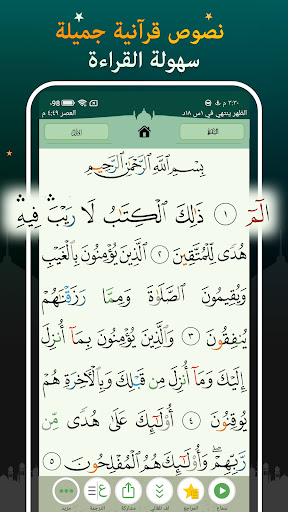 نصوص قرآنية جميلة
سهولة القراءة
٣:٣٠ م
98
الظهر ينتهي في ١س ١٨د
العصر ٤:٤٩ م
بِسْمِ ٱللَّهِ ٱلرَّحْمَٰنِ ٱلرَّحِيمِ
الٓمٓ ١ ذَٰلِكَ ٱلْكِتَٰبُ لَا رَيْبَ ۛ فِيهِ ۛ
هُدًى لِّلْمُتَّقِينَ ٢ ٱلَّذِينَ يُؤْمِنُونَ بِٱلْغَيْبِ
وَيُقِيمُونَ ٱلصَّلَوٰةَ وَمِمَّا رَزَقْنَٰهُمْ
يُنفِقُونَ ٣ وَٱلَّذِينَ يُؤْمِنُونَ بِمَآ أُنزِلَ
إِلَيْكَ وَمَآ أُنزِلَ مِن قَبْلِكَ وَبِٱلْءَاخِرَةِ هُمْ
يُوقِنُونَ ٤ أُو۟لَٰٓئِكَ عَلَىٰ هُدًى مِّن
رَّبِّهِمْ ۖ وَأُو۟لَٰٓئِكَ هُمُ ٱلْمُفْلِحُونَ ٥
سماع
المراجع
مشاركة
الترجمة
مزيد